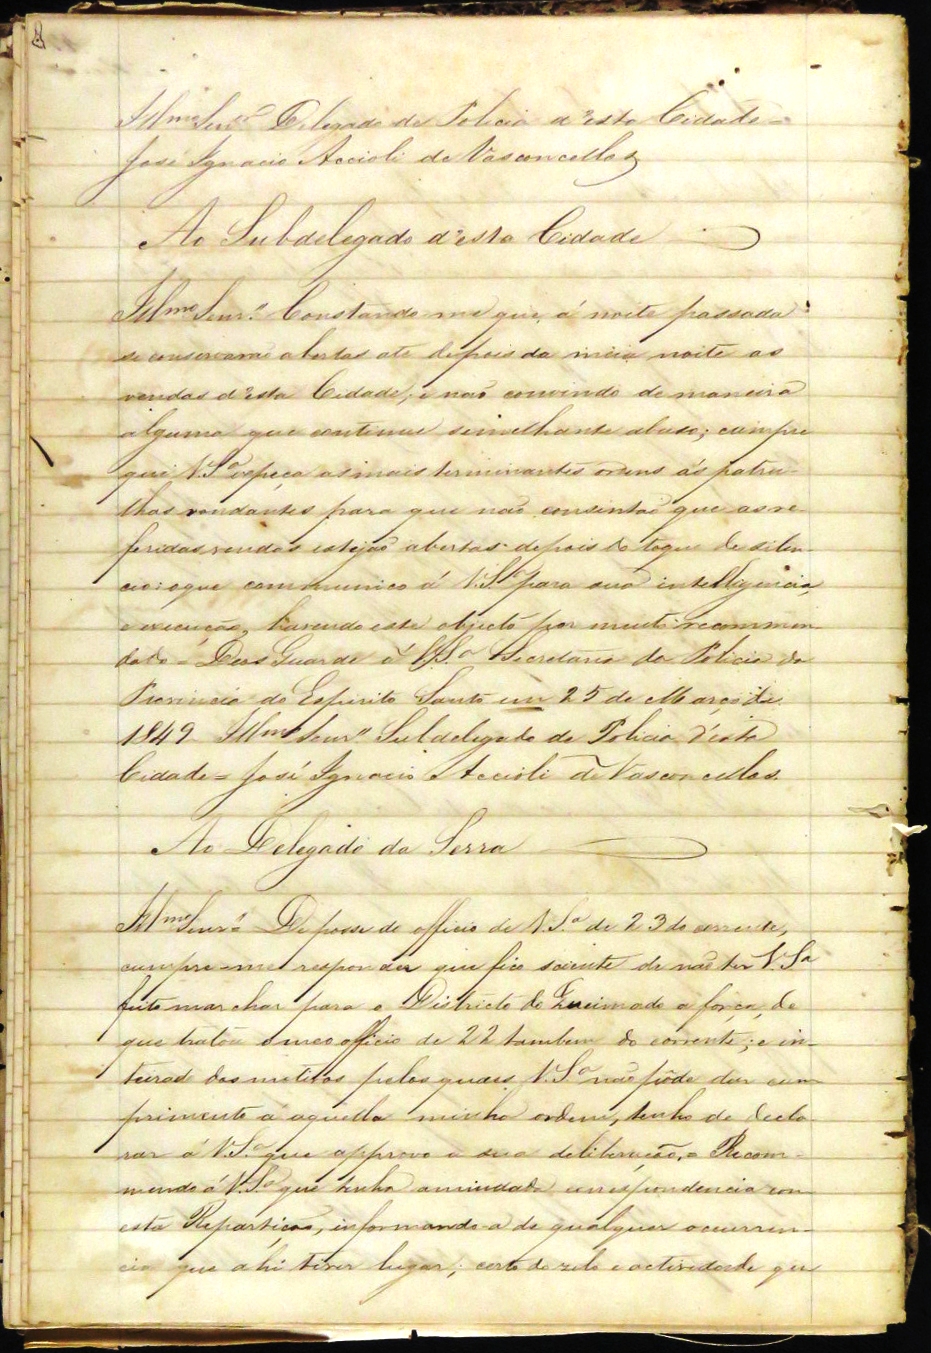 Illmo Senr Delegado de Policia d'esta Cidade =
José Ignacio Accioli de Vasconcellos
Ao Subdelegado d'esta Cidade
Illmo Senr. Constando-me que, á noite passada
se conservarão abertas até depois da meia noite as
vendas d'esta Cidade, e não convindo de maneira
alguma que continue semelhante abuso; cumpre
que V.Sa expeça as mais terminantes ordens ás patru-
lhas rondantes para que não consintão que as re-
feridas vendas estejão abertas depois do toque de silen-
cio: o que communico á V.Sa para sua intelligencia,
e execução, havendo este objecto por muito recommen-
dado = Deos Guarde á V.Sa Secretaria da Policia da
Provincia do Espirito Santo em 25 de Março de
1849 Illmo Senr Subdelegado de Policia d'esta
Cidade = José Ignacio Accioli de Vasconcellos.
Ao Delegado da Serra
Illmo Senr = De posse do officio de V.Sa de 23 do corrente,
cumpre-me responder que fico sciente de não ter V.Sa
feito marchar para o Districto do Queimado a força, de
que tratou o meo officio de 22 tambem do corrente; e in-
teirado dos motivos pelos quais V.Sa não pôde dar cum-
primento á aquella minha ordem, tenho de decla-
rar á V.Sa que approvo a sua deliberação, e Recom-
mendo á V.Sa que tenha amiudada correspondencia com
esta Repartição, informando-a de qualquer occurren-
cia que ahi tiver lugar; certo do zelo e actividade que